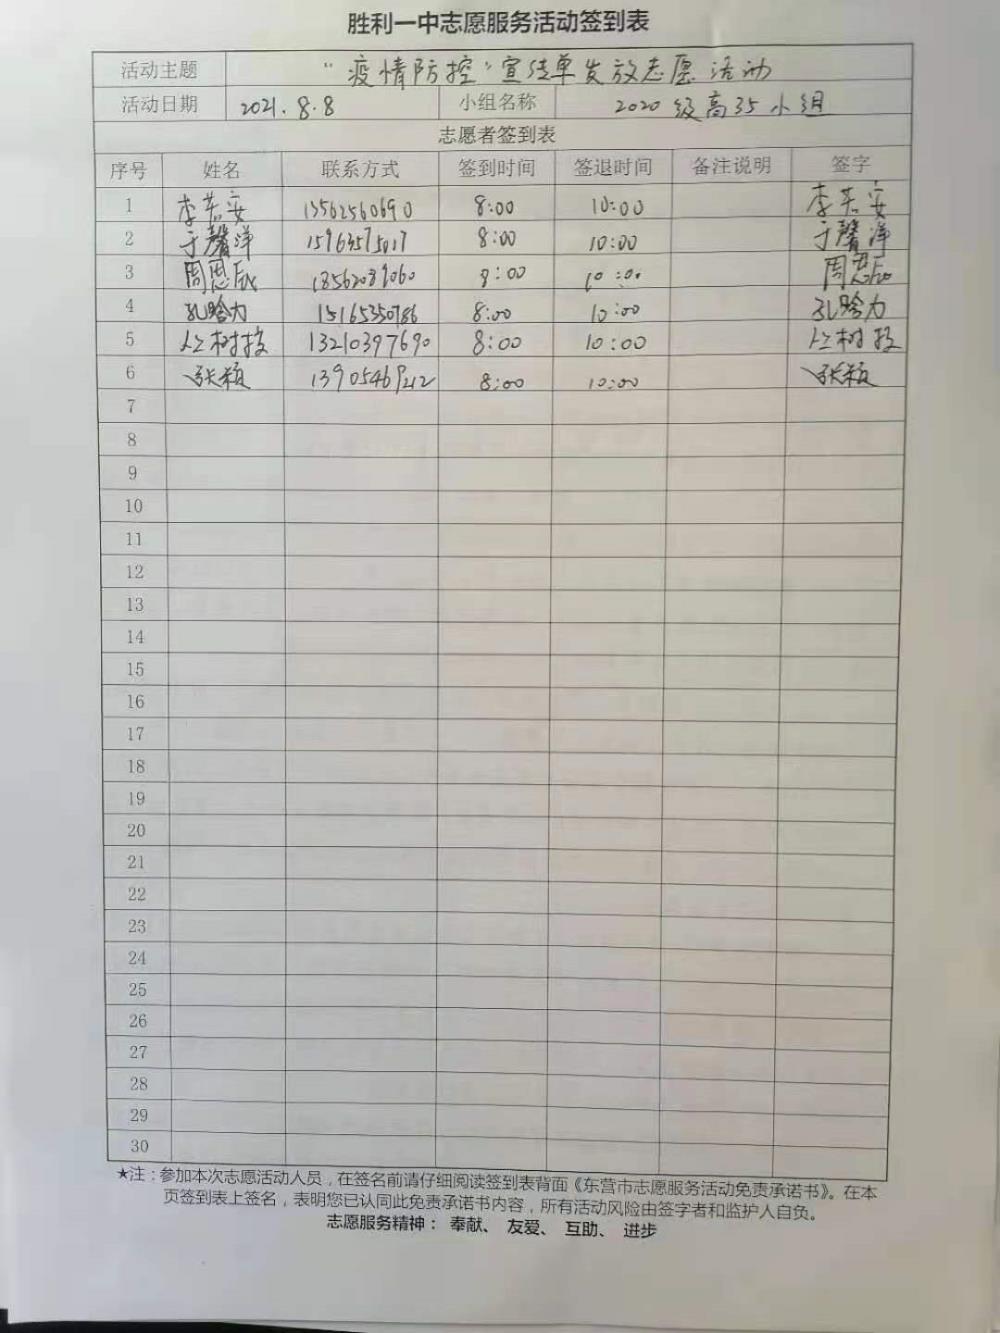 胜利一中志愿服务活动签到表
活动主题 “疫情防控”宣传单发放志愿活动
活动日期 2021.8.8 小组名称 2020级高35小组
志愿者签到表
序号 姓名 联系方式 签到时间 签退时间 备注说明 签字
1 李若安 13562560690 8:00 10:00 李若安
2 于馨洋 15963575017 8:00 10:00 于馨洋
3 周思辰 18562089060 8:00 10:00 周思辰
4 孔晗力 15165350786 8:00 10:00 孔晗力
5 树 13210397690 8:00 10:00 树
6 张颖 13905469212 8:00 10:00 张颖
7
8
9
10
11
12
13
14
15
16
17
18
19
20
21
22
23
24
25
26
27
28
29
30
★注：参加本次志愿活动人员，在签名前请仔细阅读签到表背面《东营市志愿服务活动免责承诺书》。在本
页签到表上签名，表明您已认同此免责承诺书内容，所有活动风险由签字者和监护人自负。
志愿服务精神： 奉献、 友爱、 互助、 进步